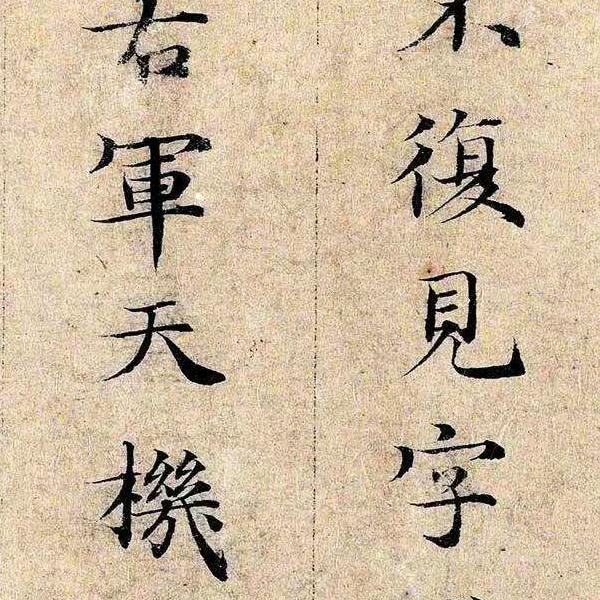 復見字
右軍天機